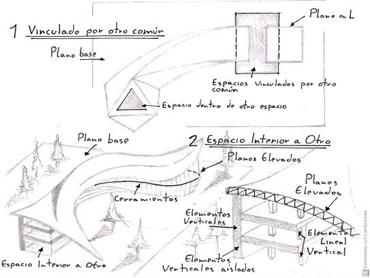 1 Vinculado por otro común
Plano en L
Plano base
Espacios Vinculados por otro
común
Espacio dentro de otro espacio
Plano base
2 Espacio Interior a Otro
Planos Elevados
Cerramientos
Planos
Elevados
Elementos
Verticales
Elemento
Lineal
Vertical
Espacio Interior a Otro
Elementos
Verticales aislados